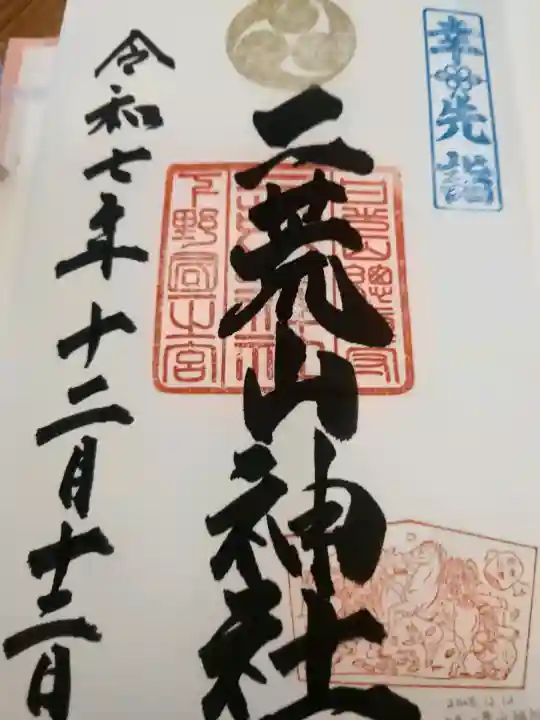 幸先詣
二荒山神社
下野國一之宮
令和七年十二月十二日